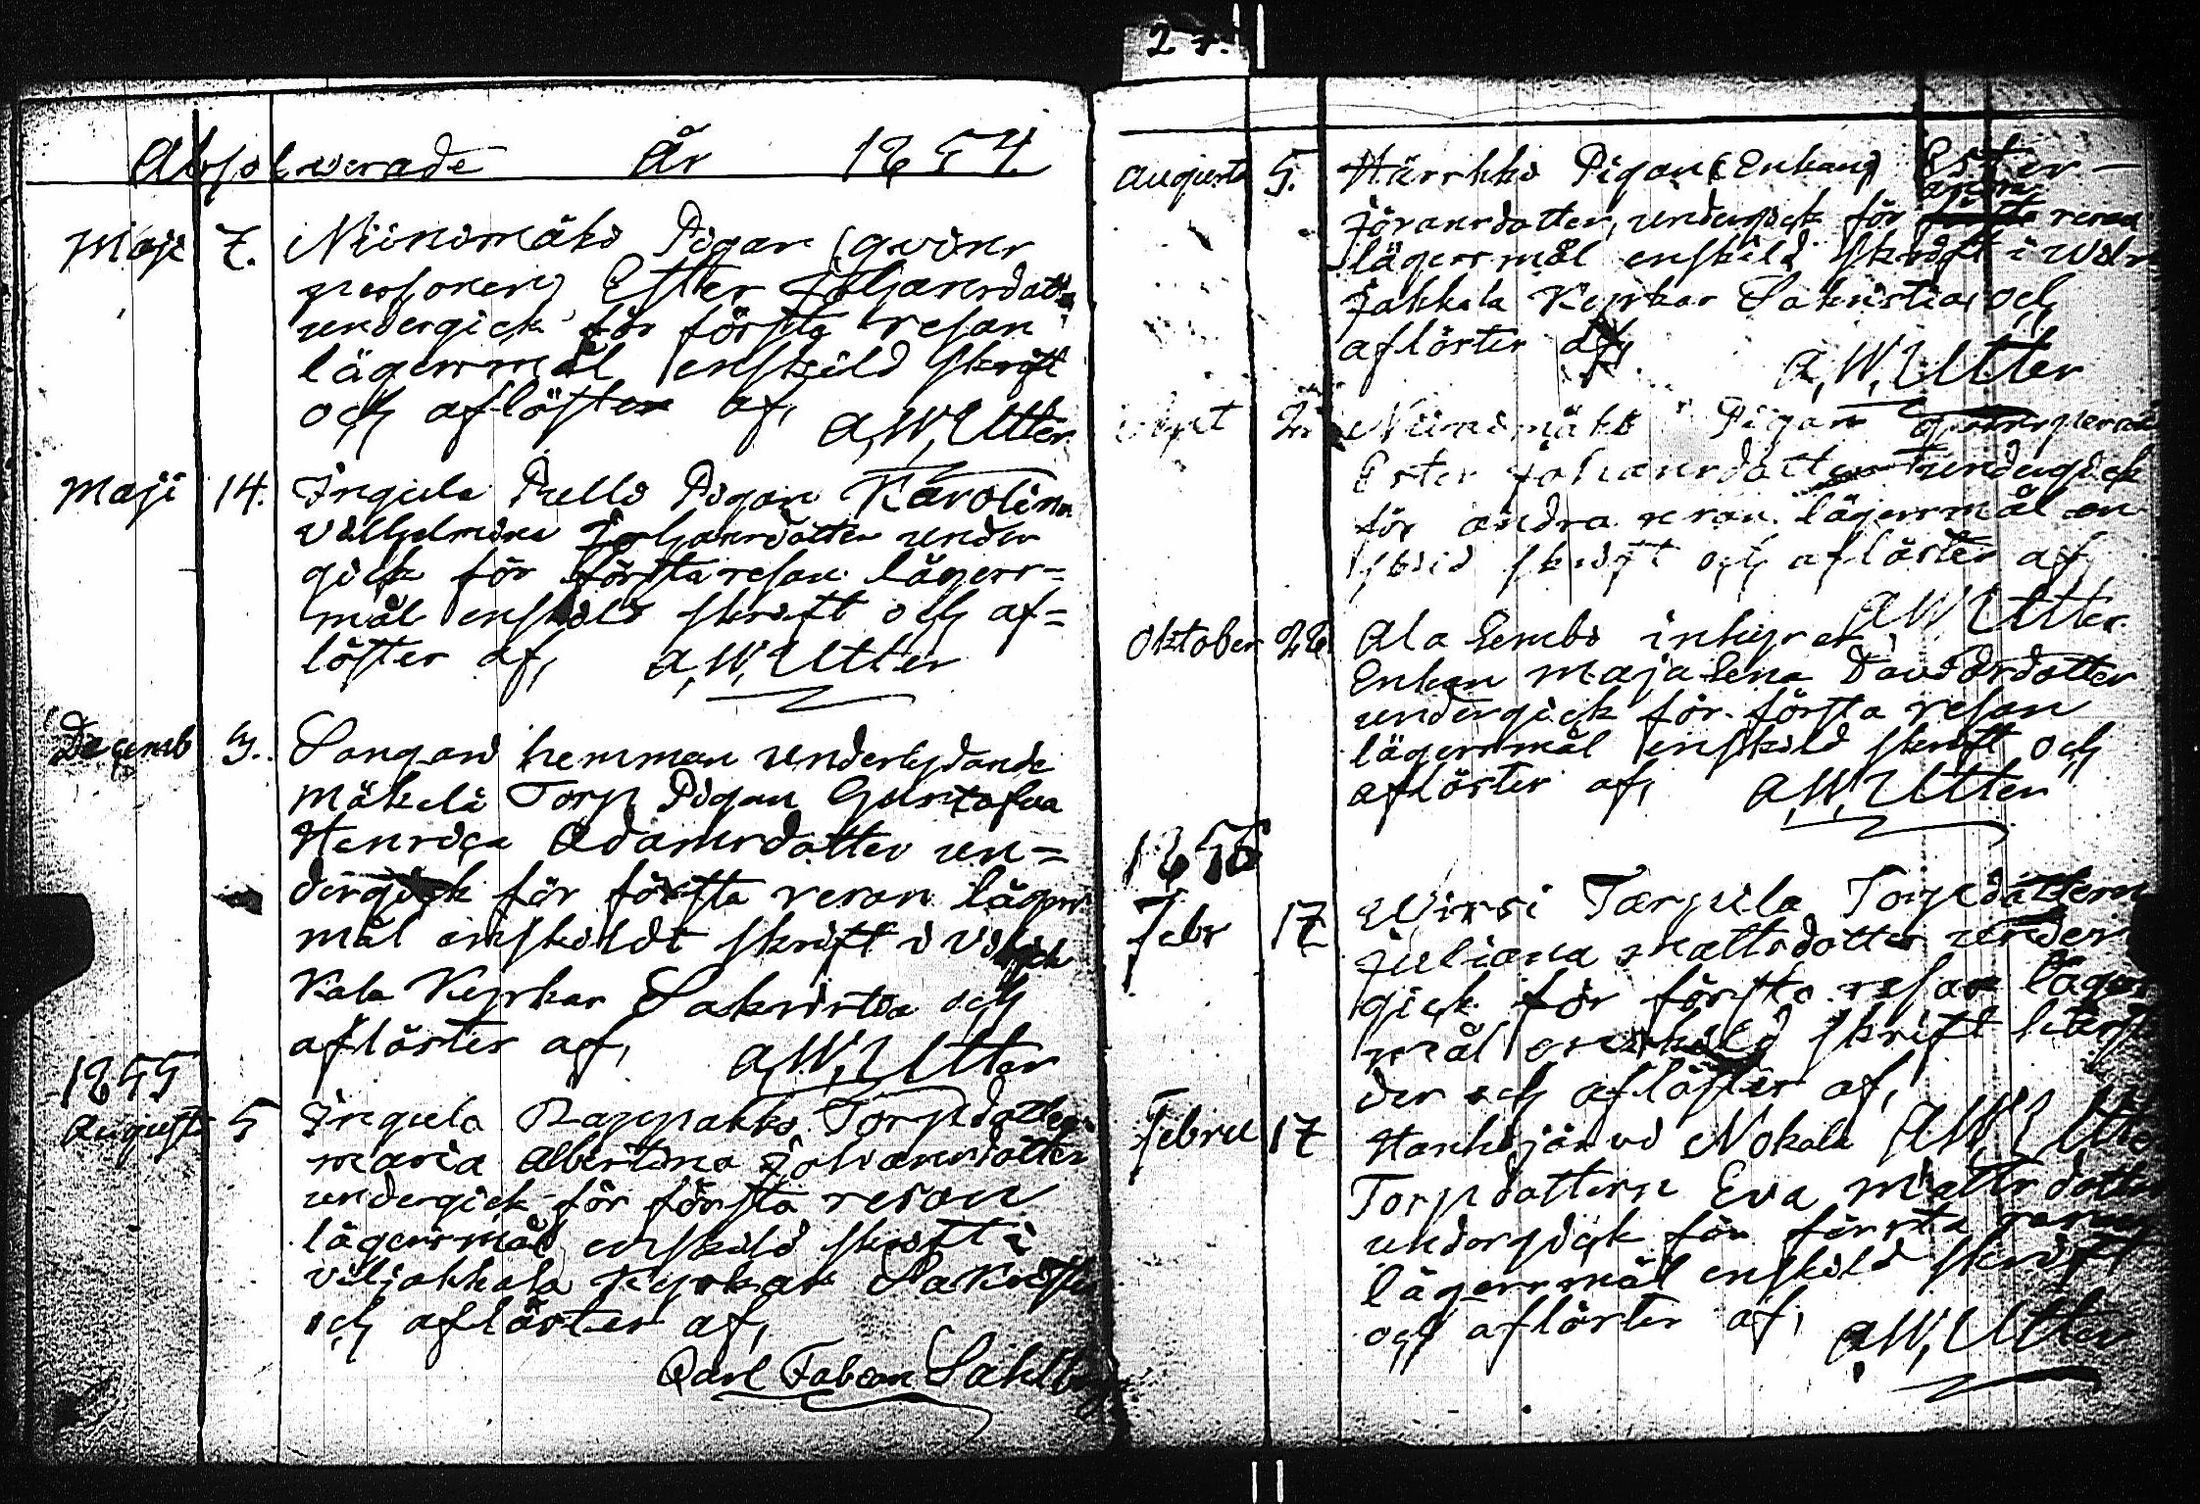 27.
Absolverade År 1854.
Maji 7. Niinimäki Pigan (qvins
personen) Ester Johansdott=
undergick för första resan
lägersmål enskild skrift
och aflöstes af, A,W,Utter
Maji 14. Ingula Pulli Pigan Karolina
Vilhelmina Johansdotter under
gick för första resan lägers=
mål enskild skrift och af=
löstes af, A,W,Utter
Decemb 3. Sangari hemman underlydande
Mäkelä Torp Pigan Gustafva
Henrica Adamsdotter un=
dergick för första resan lägers
mål enskildt skrift i
kala Kyrkas Sakristia och
aflöstes af, A,W,Utter
1855
Augusti 5 Ingula Torpdotter
Maria Albertina Johansdotter
undergick för första resan
lägersmål enskild skrift i
Viljakkala Kyrkas Sakristia
och aflöstes af,
Carl Fabian Sahlberg
Augusti 5. Härkki Pigan (Enkan) Ester
Jöransdotter, undergick för andra resan
lägersmål enskild skrift i Wil
jakkala Kyrkas Sakristia och
aflöstes af, A,W,Utter
Sept Niinimäki Pigan
Ester Johansdotter undergick
för andra resan lägersmål en
skild skrift och aflöstes af
A W Utter
Oktober 28 Ala Lembi inhyses
Enkan Maja Lena Davidsdotter
undergick för första resan
lägersmål enskild skrift och
aflöstes af, A,W,Utter
1856
Febr 17 Wirsi Tarpila Torpdottern
Juliana Mattsdotter under
gick för första resan lägers
mål enskild skrift
och aflöstes af,
Februa 17 Hanhijärvi Nokala A,W,Utter
Torpdottern Eva Mattsdotter
undergick för första resan
lägersmål enskild skrift
och aflöstes af, A,W,Utter